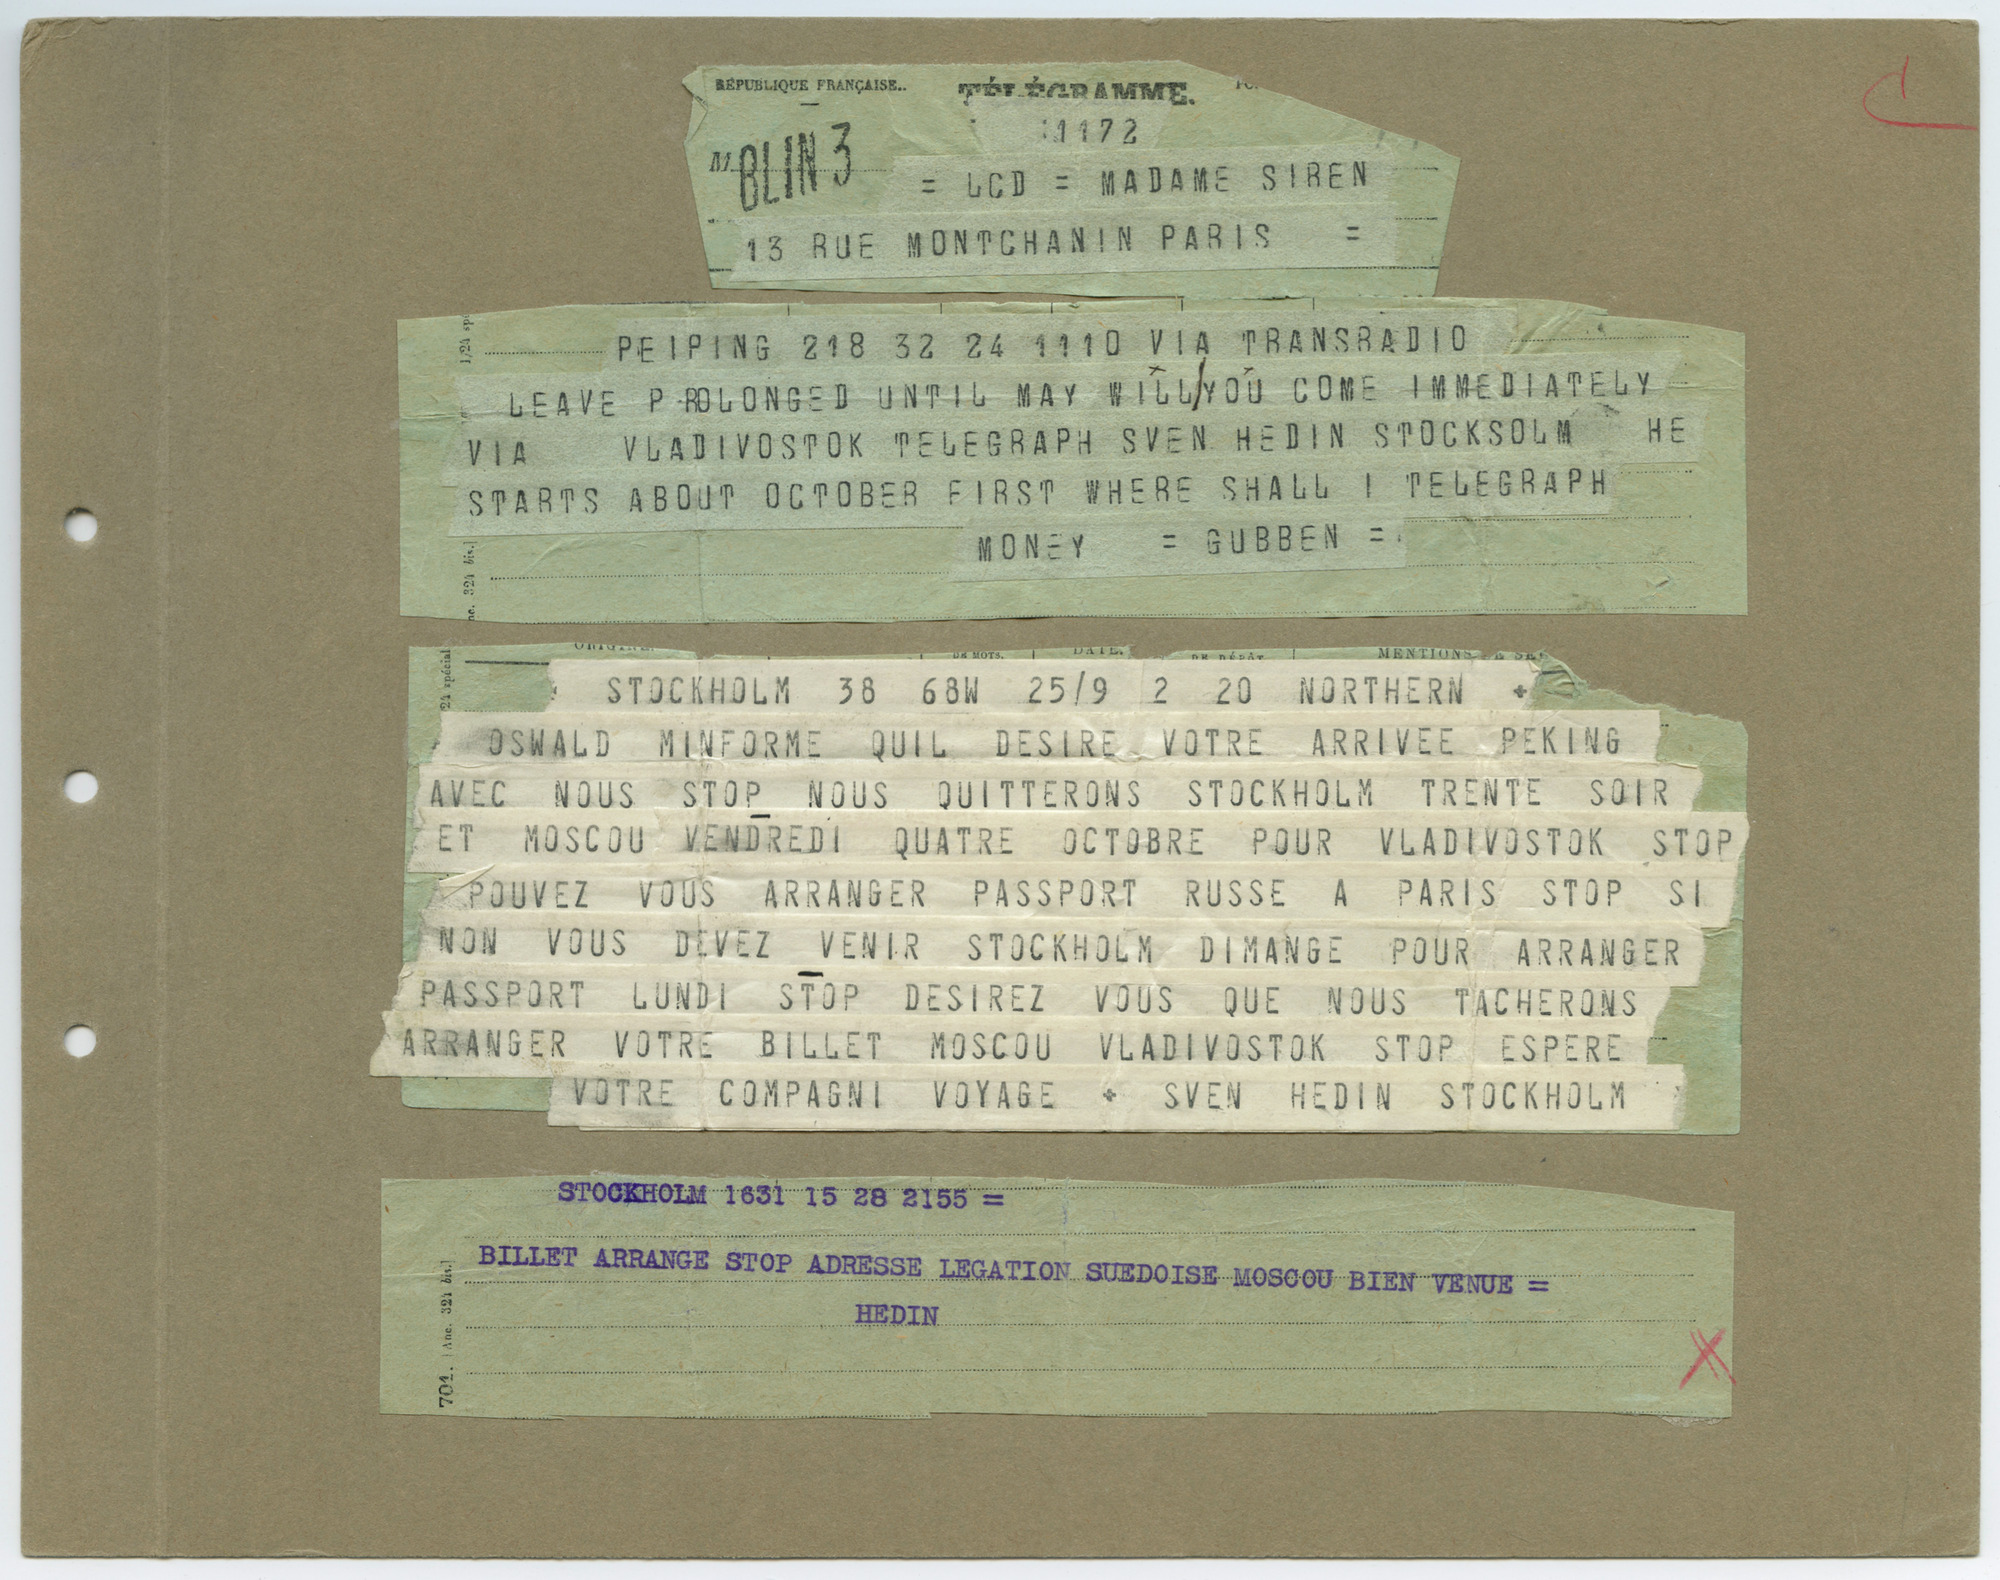 RÉPUBLIQUE FRANÇAISE.
TÉLÉGRAMME.
1172
M. BLIN 3
= LCD = MADAME SIREN
13 RUE MONTCHANIN PARIS =
PEIPING 218 32 24 1110 VIA TRANSRADIO
LEAVE PROLONGED UNTIL MAY WILL/YOU COME IMMEDIATELY
VIA VLADIVOSTOK TELEGRAPH SVEN HEDIN STOCKSOLM HE
STARTS ABOUT OCTOBER FIRST WHERE SHALL I TELEGRAPH
MONEY = GUBBEN =
1/24 spé
nc. 324 bis.]
ORIGINE. DE MOTS. DATE. DE DÉPÔT MENTIONS DE SE
24 spécial
STOCKHOLM 38 68W 25/9 2 20 NORTHERN +
OSWALD MINFORME QUIL DESIRE VOTRE ARRIVEE PEKING
AVEC NOUS STOP NOUS QUITTERONS STOCKHOLM TRENTE SOIR
ET MOSCOU VENDREDI QUATRE OCTOBRE POUR VLADIVOSTOK STOP
POUVEZ VOUS ARRANGER PASSPORT RUSSE A PARIS STOP SI
NON VOUS DEVEZ VENIR STOCKHOLM DIMANGE POUR ARRANGER
PASSPORT LUNDI STOP DESIREZ VOUS QUE NOUS TACHERONS
ARRANGER VOTRE BILLET MOSCOU VLADIVOSTOK STOP ESPERE
VOTRE COMPAGNI VOYAGE + SVEN HEDIN STOCKHOLM
STOCKHOLM 1631 15 28 2155 =
BILLET ARRANGE STOP ADRESSE LEGATION SUEDOISE MOSCOU BIEN VENUE =
HEDIN
701. (Anc. 324 bis.]